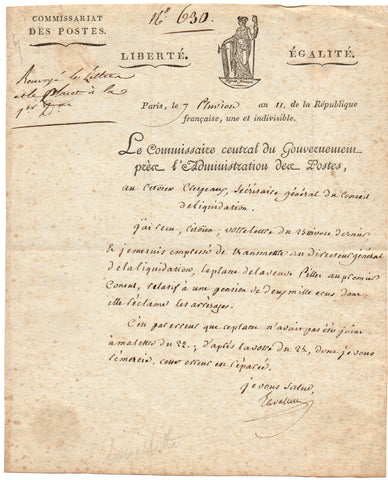 COMMISSARIAT
DES POSTES.
N.° 630.
LIBERTÉ.
ÉGALITÉ.
Renvoyé les Lettres
et le placet à la
Paris, le 7 Pluviose an 11. de la République
française, une et indivisible.
Le Commissaire central du Gouvernement
près l'Administration des Postes,
au Citoyen Clergeaux, Sécrétaire général du Conseil
de liquidation.
J'ai reçu, Citoyen, votre lettre du 25 nivose dernier
& je me suis empressé de transmettre au directeur général
de la liquidation, le placet de la veuve Piller au premier
Consul, relatif à une pension de deux mille ecus dont
elle réclame les arrérages.
C'est par erreur que ce placet n'avait pas été joint
à ma lettre du 22 ; d'après la votre du 25, dont je vous
remercie, cette erreur est réparée.
Je vous salue,
Lavallette